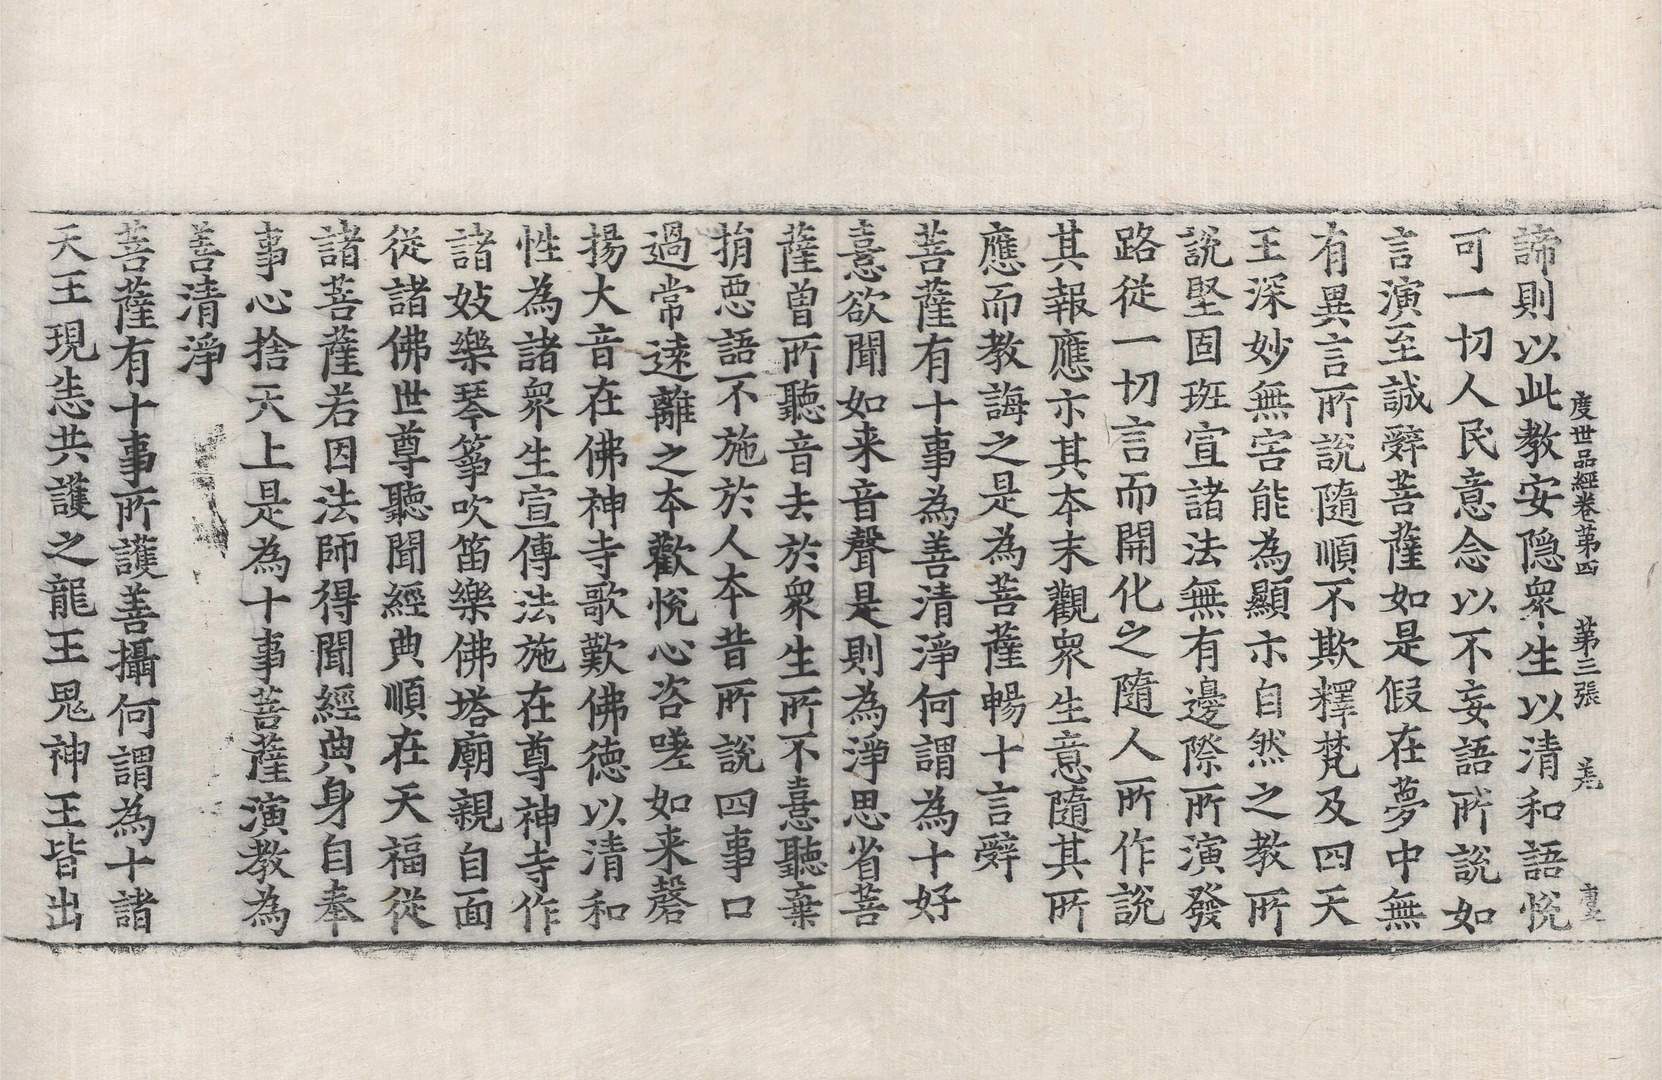 度世品經卷第四 第三張 羌
諦則以此教安隱衆生以清和語悅
可一切人民意念以不妄語所說如
言演至誠辭菩薩如是假在夢中無
有異言所說隨順不欺釋梵及四天
王深妙無害能為顯示自然之教所
說堅固班宣諸法無有邊際所演發
路從一切言而開化之隨人所作說
其報應示其本末觀衆生意隨其所
應而教誨之是為菩薩暢十言辭
菩薩有十事為善清淨何謂為十好
憙欲聞如来音聲是則為淨思省菩
薩曽所聽音去於衆生所不憙聽棄
捐惡語不施於人本昔所說四事口
過常遠離之本歡悅心咨嗟如来磬
揚大音在佛神寺歌歎佛德以清和
性為諸衆生宣傳法施在尊神寺作
諸妓樂琴箏吹笛樂佛塔廟親自面
從諸佛世尊聽聞經典順在天福從
諸菩薩若因法師得聞經典身自奉
事心捨天上是為十事菩薩演教為
善清淨
菩薩有十事所護善攝何謂為十諸
天王現恙共護之龍王鬼神王皆出